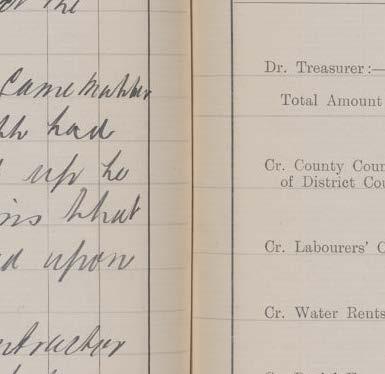 the
same matter
had
up he
that
upon
Dr. Treasurer :—
Total Amount
Cr. County Coun
of District Cou
Cr. Labourers' C
Cr. Water Rents